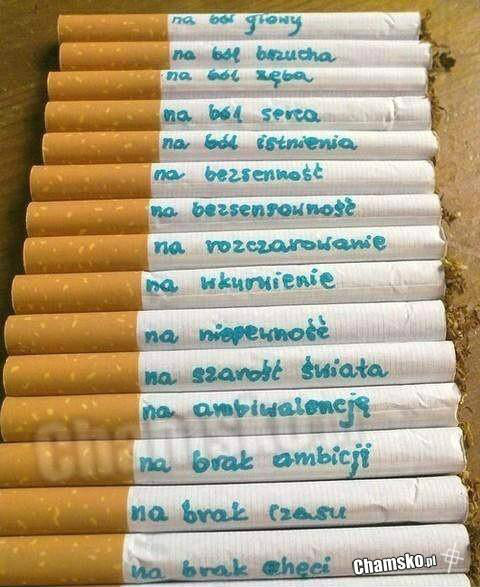 na ból głowy
na ból brzucha
na ból zęba
na ból serca
na ból istnienia
na bezsenność
na bezsensowność
na rozczarowanie
na wkurwienie
na niepewność
na szarość świata
na ambiwalencję
na brak ambicji
na brak czasu
na brak chęci
Chamsko.pl
Chamsko.pl